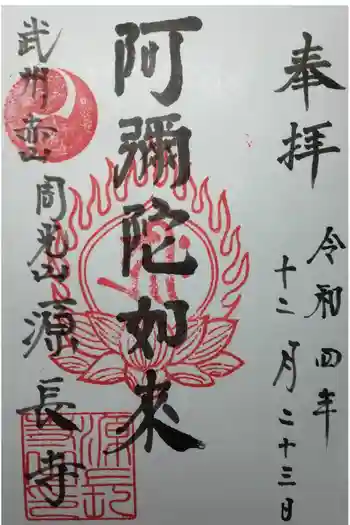 奉拝
令和四年
十二月二十三日
阿彌陀如来
武州赤山
周光山源長寺
源長寺